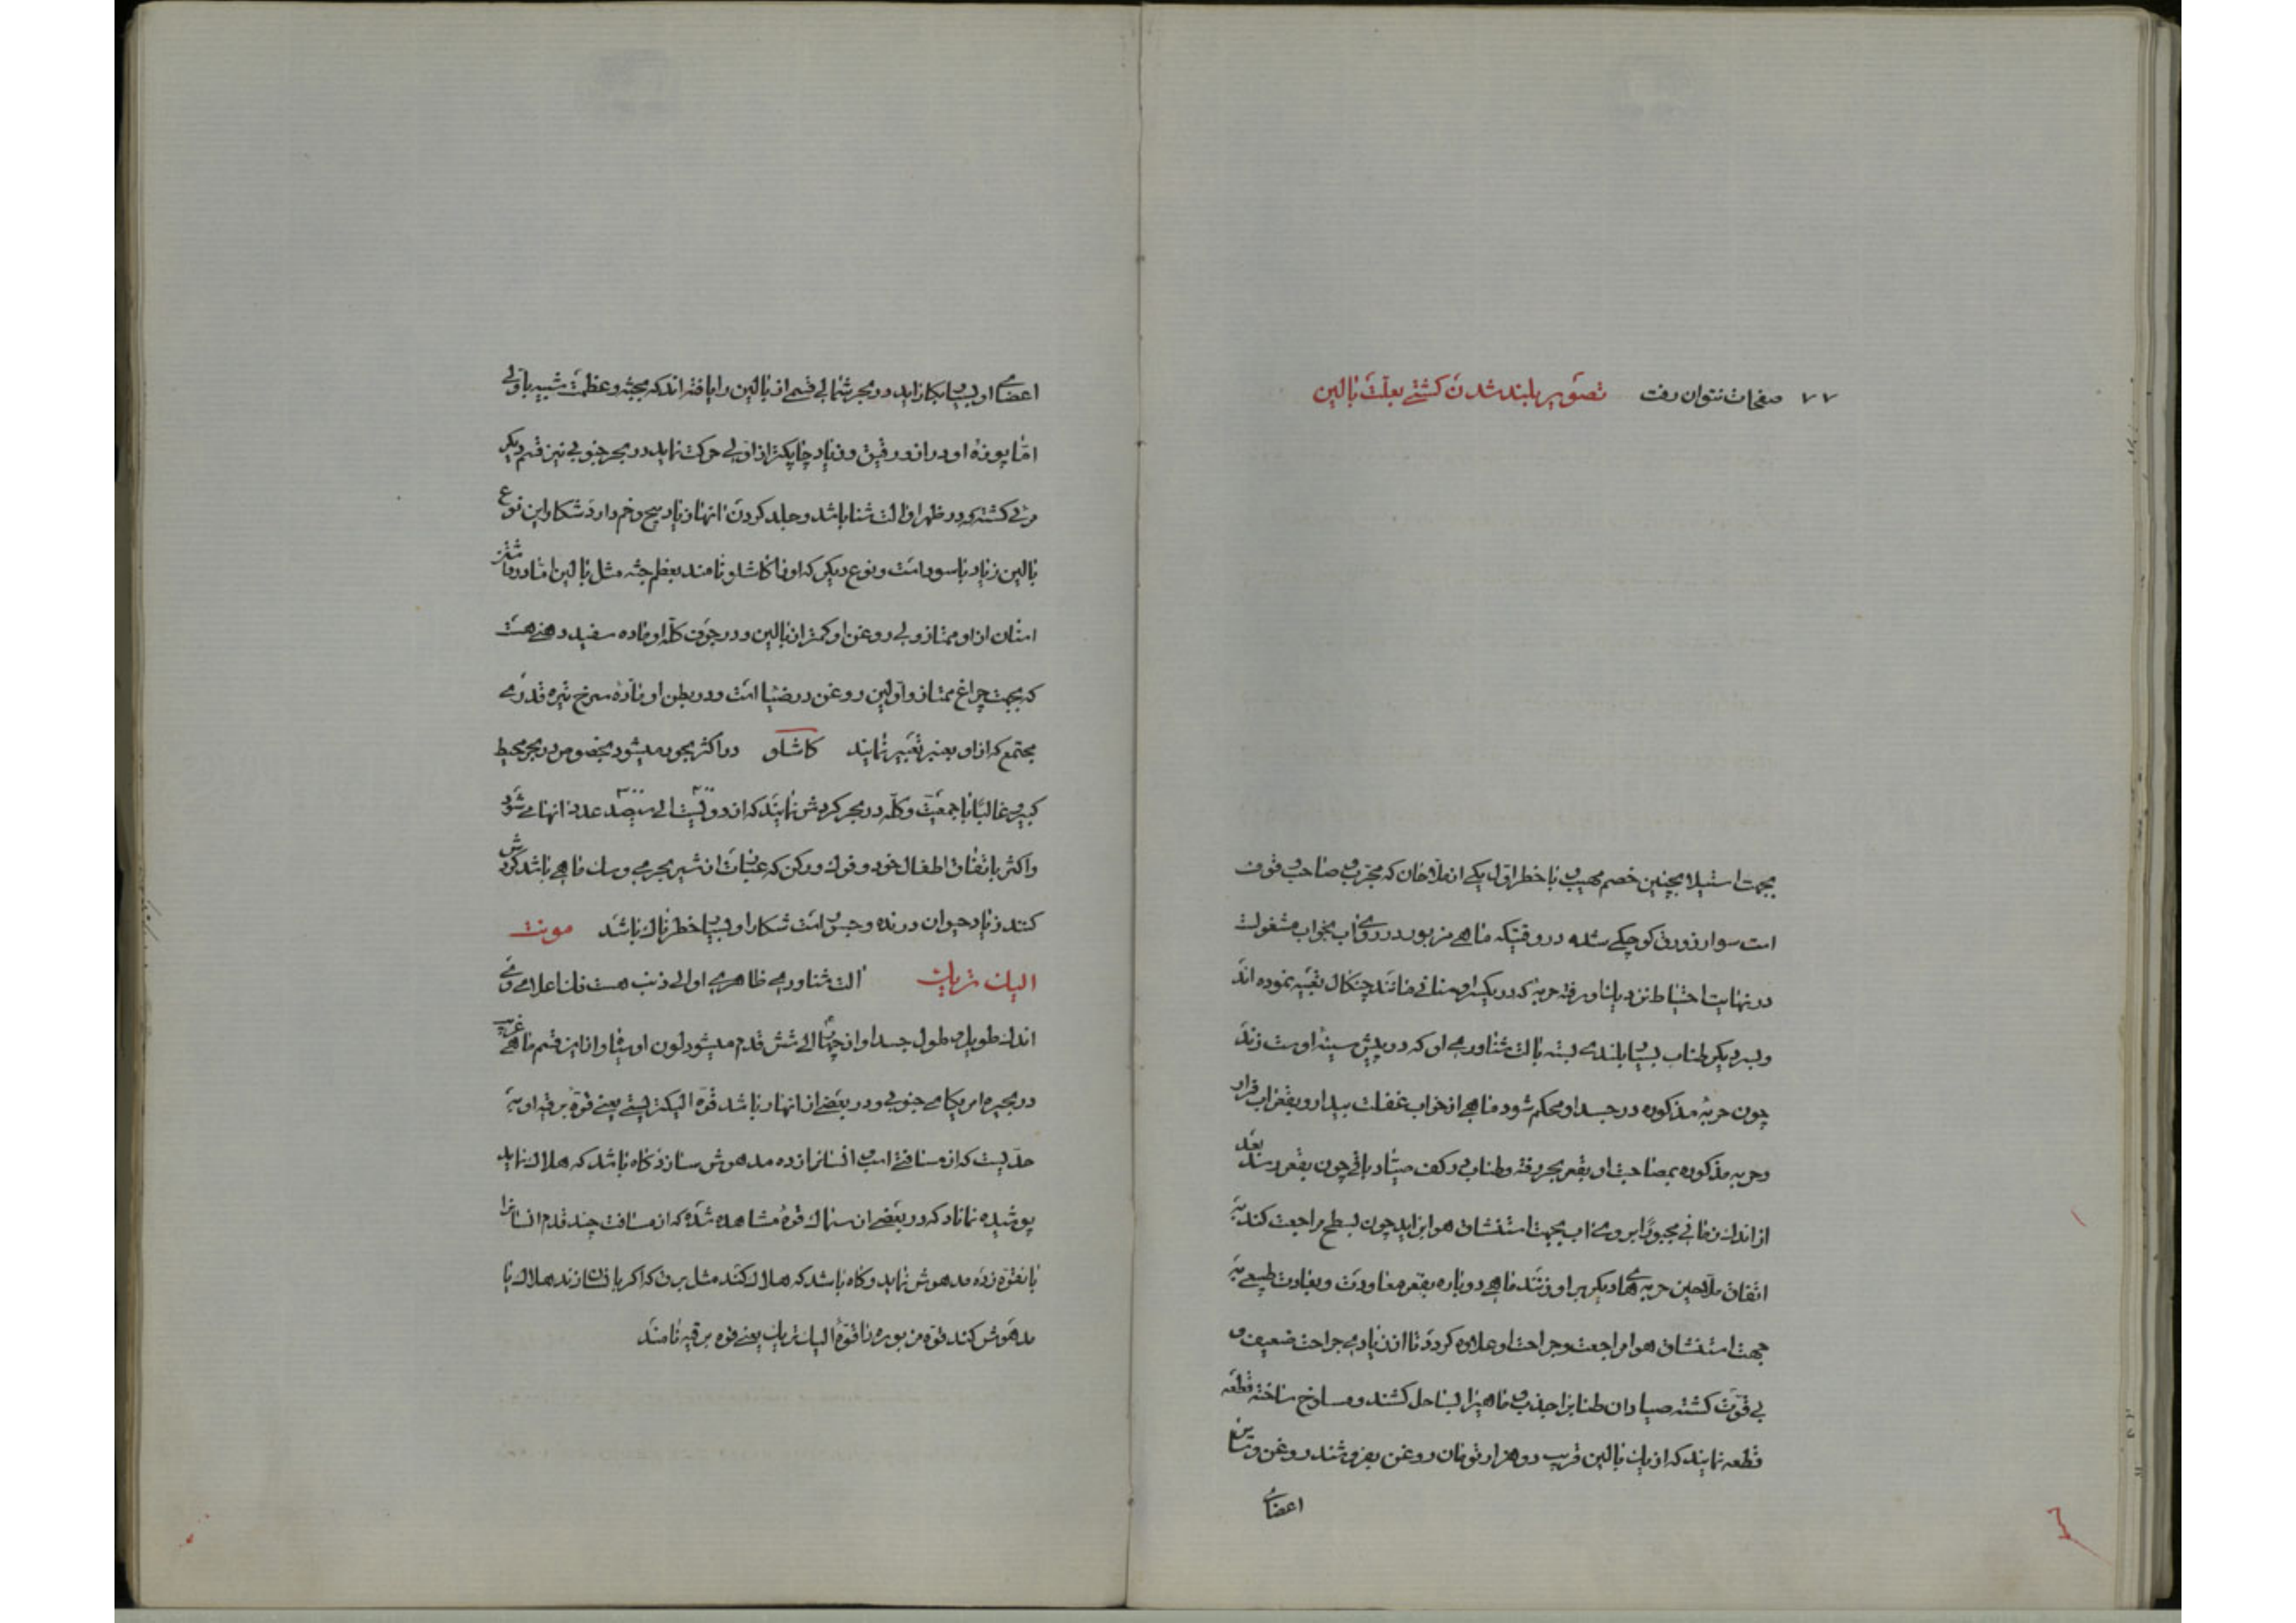 ۷۷ صفحات نتوان رفت تصویر بلند شدن کشتی بعلت بالین
بجهت استیلا بچنین خصم مهیب با خطر اول یکی از ملاحان که مجرب و صاحب قوت
است سوار زورق کوچکی شده در وقتیکه ماهی مزبور در روی آب بخواب مشغولست
در نهایت احتیاط نزدیک او رفته حربه که در یکسر او مانند چنکال تعبیه نموده اند
و بسر دیکر طناب بسیار بلندی بسته بالت شناوری او که در پیش سینه اوست زند
چون حربه مذکوره در جسد او محکم شود ماهی از خواب غفلت بیدار و بقعر آب فرار
و حربه مذکوره بمصاحبت او بقعر بحر رفته و طناب در کف صیاد باقی چون بقعر رسد بعد
از اندک زمانی مجبورا بروی آب بجهت استنشاق هوا بر آید چون بسطح مراجعت کند به
اتفاق ملاحین حربه های دیکر بر او زنند ماهی دوباره بقعر معاودت و بعادت طبیعی به
جهت استنشاق هوا مراجعت و جراحت او علاوه کردد تا از زیادی جراحت ضعیف و
بی قوت کشته صیادان طناب را جذب و ماهی را بساحل کشند و مسلوخ ساخته قطعه
قطعه نمایند که از یک بالین قریب دو هزار تومان روغن بفروشند روغن و سایر
اعضای
اعضای او بسیار بکار آید در بحر شمالی قسمی از بالین را یافته اند که بجثه و عظمت شبیه باولی
اما پوزه او دراز و رقیق و زیاد چابکتر از اولی حرکت نماید در بحر جنوبی نیز قسم دیکر
مرئی کشته که در ظهر او آلت شنا باشد و جلد کردن آنها زیاد پیچ و خم دارد شکار این نوع
بالین زیاد با سود است و نوع دیکر که او را کاشلو نامند بعظم جثه مثل بالین اما در
اسنان از او ممتاز ولی روغن او کمتر از بالین و در جوف کله او ماده سفید دهنی هست
که بجهت چراغ ممتاز و اولین روغن در ضیا است و در بطن او ماده سرخ تیره قدری
مجتمع که از او بعنبر تعبیر نمایند کاشلو در اکثر بحور میشود بخصوص در بحر محیط
کبیر و غالبا با جمعیت و کله در بحر کردش نمایند که از دویست الی سیصد عدد آنها می شود
و اکثر باتفاق اطفال خود و فوک و رکن که عبارت از شیر بحری و سک ماهی باشد کردش
کنند زیاد حیوان درنده و جسور است شکار او بسیار خطرناک باشد مونت
الیک تریک آلت شناوری ظاهری او الی ذنب هست فک اعلای وی
اندک طویل و طول جسد او از چهار الی شش قدم میشود لون او سیاه و از این قسم ماهی
در بحیره امریکای جنوبی و در بعضی از انهار باشد قوه الیکتریسیتی یعنی قوه برقیه او به
حدیست که از مسافتی اسب و انسانرا زده مدهوش سازد کاه باشد که هلاک نماید
پوشیده نماناد که در بعضی از سماک قوه مشاهده شده که از مسافت چند قدم انسانرا
بآنقوه زده مدهوش نماید و کاه باشد که هلاک کند مثل برق که اکر بانسان زند هلاک یا
مدهوش کند قوه مزبوره را قوه الیک تریک یعنی قوه برقیه نامند